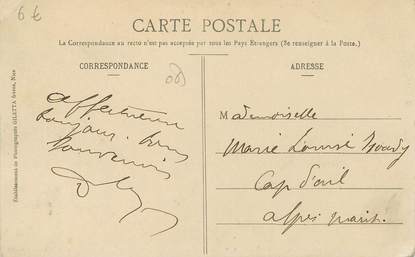 6 €
CARTE POSTALE
La Correspondance au recto n'est pas acceptée par tous les Pays Etrangers (Se renseigner à la Poste.)
CORRESPONDANCE
ADRESSE
Affectueux
bonjour. bons
souvenirs
Mademoiselle
Marie Louise
Cap d'ail
Alpes Marit.
Etablissements de Photographie GILETTA frères, Nice